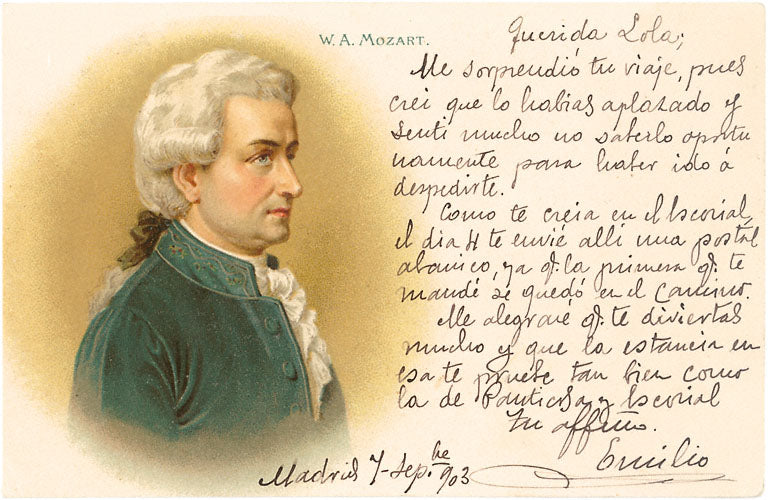 W. A. MOZART.
Querida Lola;
Me sorprendió tu viaje, pues
creí que lo habias aplazado y
sentí mucho no saberlo oportu
namente para haber ido á
despedirte.
Como te creia en el Escorial,
el dia 4 te envié alli una postal
abanico, ya q. la primera q. te
mandé se quedó en el camino.
Me alegraré q. te diviertas
mucho y que la estancia en
esa te pruebe tan bien como
la de Panticosa y Escorial
tu affmo.
Emilio
Madrid 7-Sepbre 903